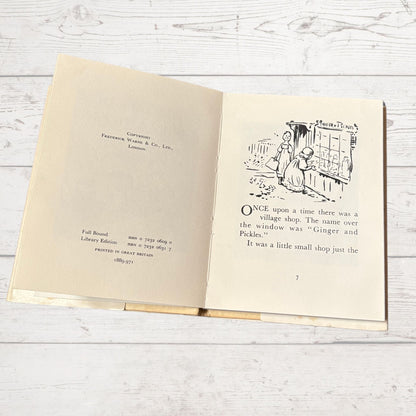 Copyright
Frederick Warne & Co., Ltd.,
London.
Full Bound ISBN 0 7232 0609 0
Library Edition ISBN 0 7232 0631 7
PRINTED IN GREAT BRITAIN
1889.971
ONCE upon a time there was a
village shop. The name over
the window was "Ginger and
Pickles."
It was a little small shop just the
7